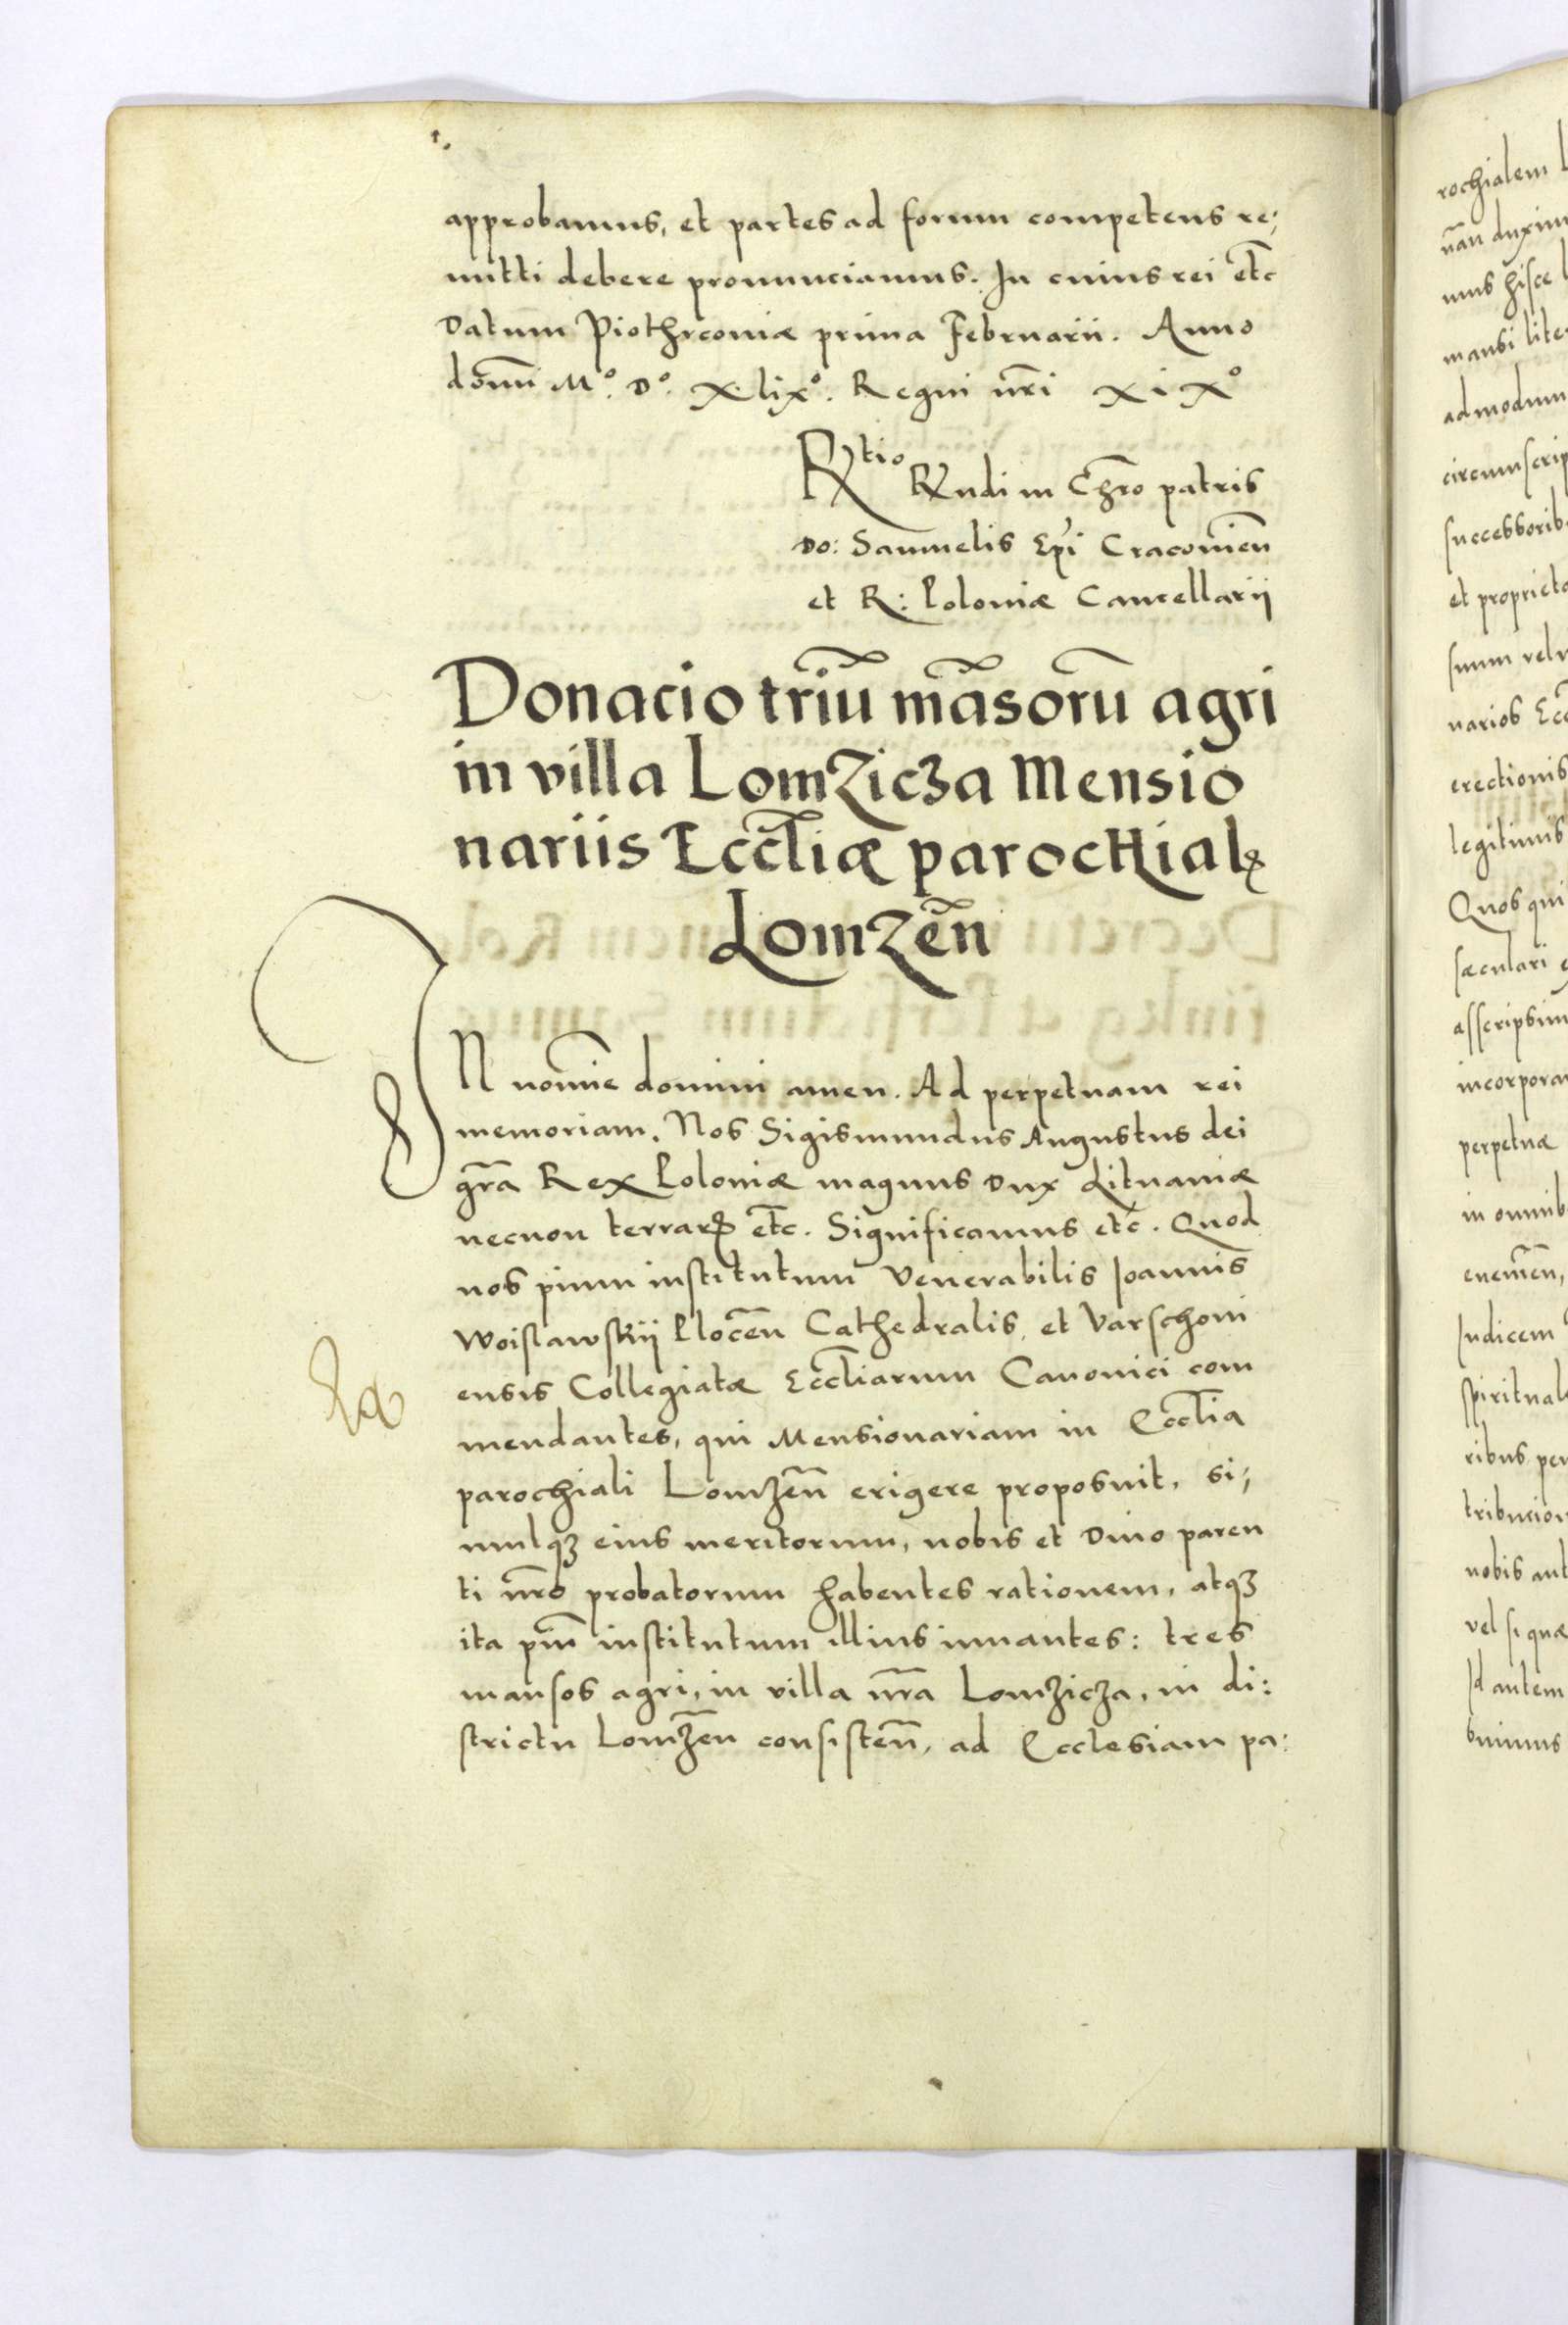 approbamus, et partes ad forum competens re;
mitti debere pronunciamus. In cuius rei etc
Datum Piothrconiæ prima Februarii. Anno
domi M.º D.º Xlixº. Regni nri xixº
Rtio Rndi in Chro patris
Do: Samuelis Epi Cracovien
et R: Poloniæ Cancellarij
Donacio triū māsorū agri
in villa Lomziczа Mensio
nariis Eccliæ parochialꝭ
Lomzēn
IN nomīe domini amen. Ad perpetuam rei
memoriam. Nos Sigismundus Augustus dei
gra Rex Poloniæ magnus Dux Lituaniæ
necnon terrarꝝ etc. Significamus etc. Quod
nos pium institutum Venerabilis Joannis
Woislawskij Plocen̄ Cathedralis, et Varschoui
ensis Collegiatæ Eccliarum Canonici com
mendantes, qui Mensionariam in Ecclia
parochiali Lomzen̄ erigere proposuit, si;
mulqꝫ eius meritorum, nobis et Diuo paren
ti nro probatorum habentes rationem, atqꝫ
ita pium̄ institutum illius iuuantes: tres
mansos agri, in villa nra Lomzicza, in di:
strictu Lomzen̄ consisten̄, ad Ecclesiam pa:
rochialem
mus hisce
mansi lite
admodum
circumscrip
successorib
et proprieta
suum vel
narios Ecc
erectionis
legitimis
Quos qui
sæculari
asscripsim
incorpora
perpetuæ
in omnib
Judicem
spirituale
ribus per
tribucion
nobis aut
vel si quæ
Id autem
buimus